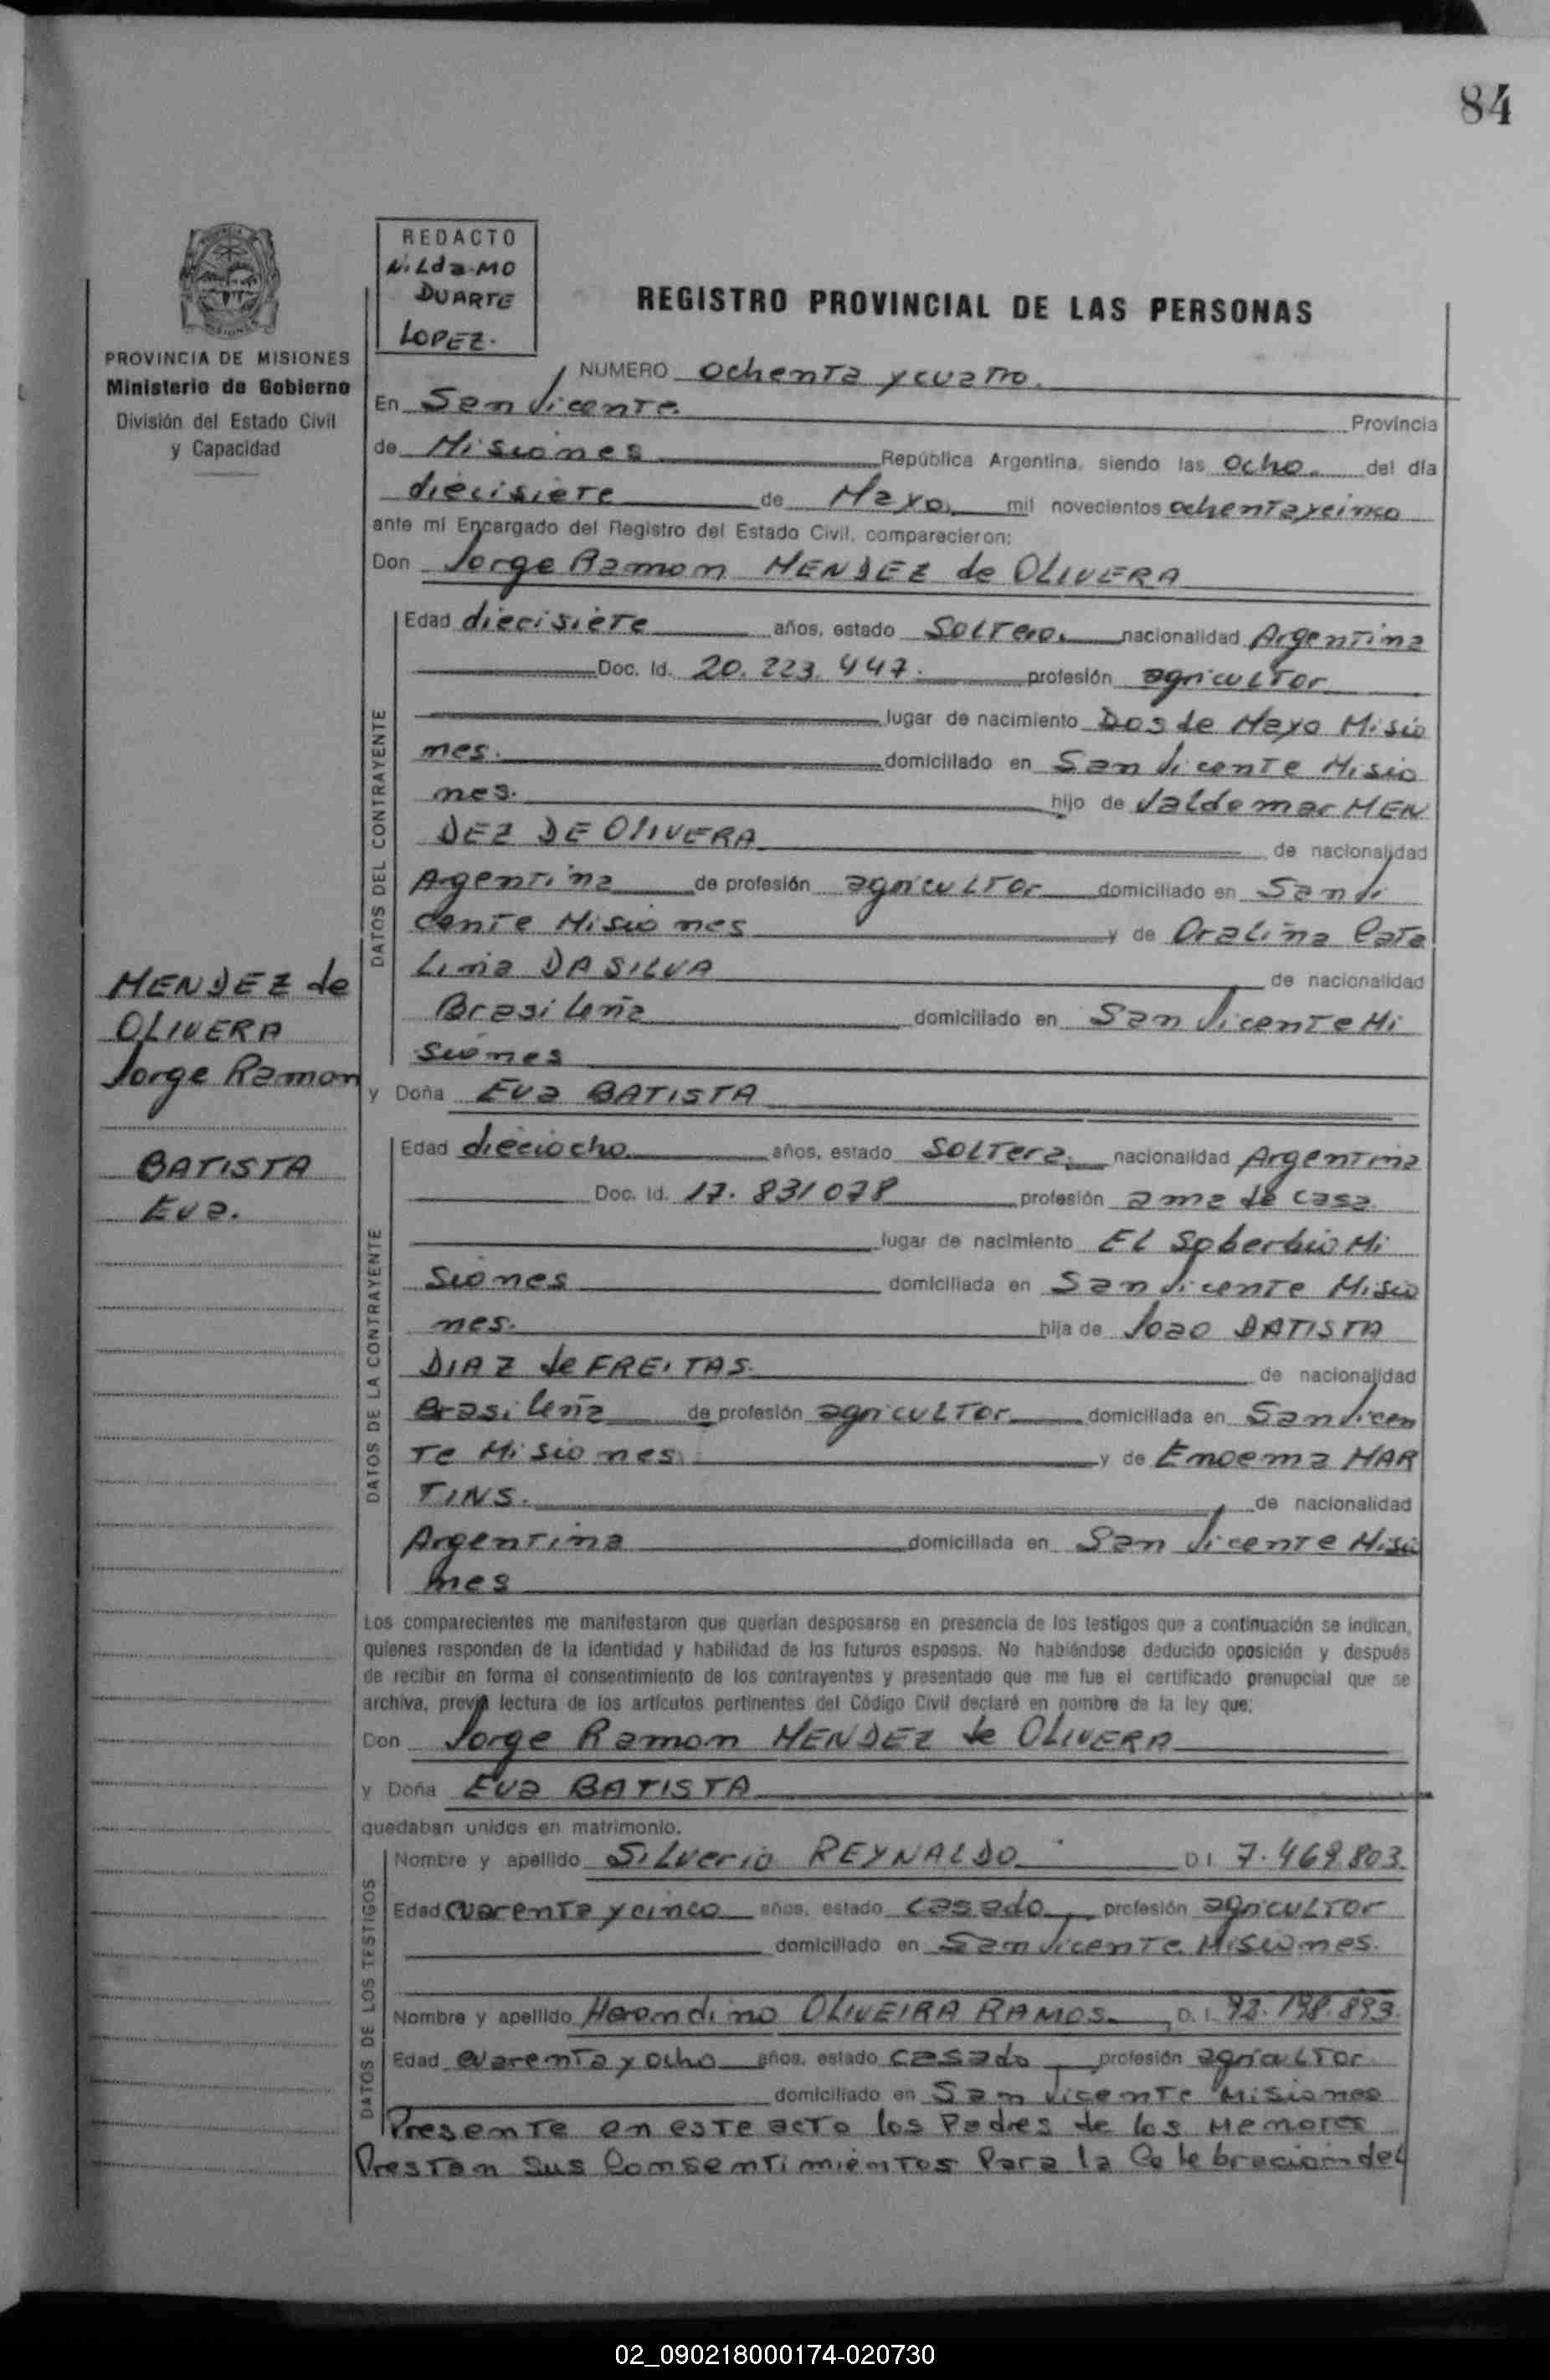 84
REDACTO
Nilda Mo
DUARTE
LOPEZ.
REGISTRO PROVINCIAL DE LAS PERSONAS
PROVINCIA DE MISIONES
Ministerio de Gobierno
División del Estado Civil
y Capacidad
NUMERO ochenta y cuatro.
En San Vicente. Provincia
de Misiones República Argentina, siendo las ocho. del día
diecisiete de Mayo. mil novecientos ochenta y cinco
ante mí Encargado del Registro del Estado Civil, comparecieron:
Don Jorge Ramon MENDEZ de OLIVERA
DATOS DEL CONTRAYENTE
Edad diecisiete años, estado Soltero. nacionalidad Argentina
Doc. Id. 20.223.447. profesión agricultor
lugar de nacimiento Dos de Mayo Misio
nes. domicililado en San Vicente Misio
nes. hijo de Valdemar MEN
DEZ DE OlIVERA de nacionalidad
Agentina de profesión agricultor domiciliado en San Vi
cente Misiones y de Oralina Cata
Lina DA SILVA de nacionalidad
Brasileña domiciliado en San Vicente Mi
siones
MENDEZ de
OLIVERA
Jorge Ramon
BATISTA
Eva.
y Doña Eva BATISTA
DATOS DE LA CONTRAYENTE
Edad dieciocho años, estado Soltera. nacionalidad Argentina
Doc. Id. 17.831078 profesión ama de casa.
lugar de nacimiento El Soberbio Mi
siones domiciliada en San Vicente Misio
nes. hija de Joao BATISTA
DIAZ de FREITAS. de nacionalidad
Brasileña de profesión agricultor domiciliada en San Vicen
te Misiones y de Enoema MAR
TINS. de nacionalidad
Argentina domiciliada en San Vicente Misio
nes
Los comparecientes me manifestaron que querían desposarse en presencia de los testigos que a continuación se indican,
quienes responden de la identidad y habilidad de los futuros esposos. No habiéndose deducido oposición y después
de recibir en forma el consentimiento de los contrayentes y presentado que me fue el certificado prenupcial que se
archiva, previa lectura de los artículos pertinentes del Código Civil declaré en nombre de la ley que:
Don Jorge Ramon MENDEZ de OLIVERA
y Doña Eva BATISTA
quedaban unidos en matrimonio.
DATOS DE LOS TESTIGOS
Nombre y apellido Silverio REYNALDO D I 7.469.803.
Edad cuarenta y cinco años, estado casado profesión agricultor
domiciliado en San Vicente Misiones.
Nombre y apellido OLIVEIRA RAMOS. D. I. 92.198.893.
Edad cuarenta y ocho años, estado casado profesión agricultor
domiciliado en San Vicente Misiones
Presente en este acto los Padres de los Menores
Prestan sus Consentimientos Para la Celebracion del
02_090218000174-020730